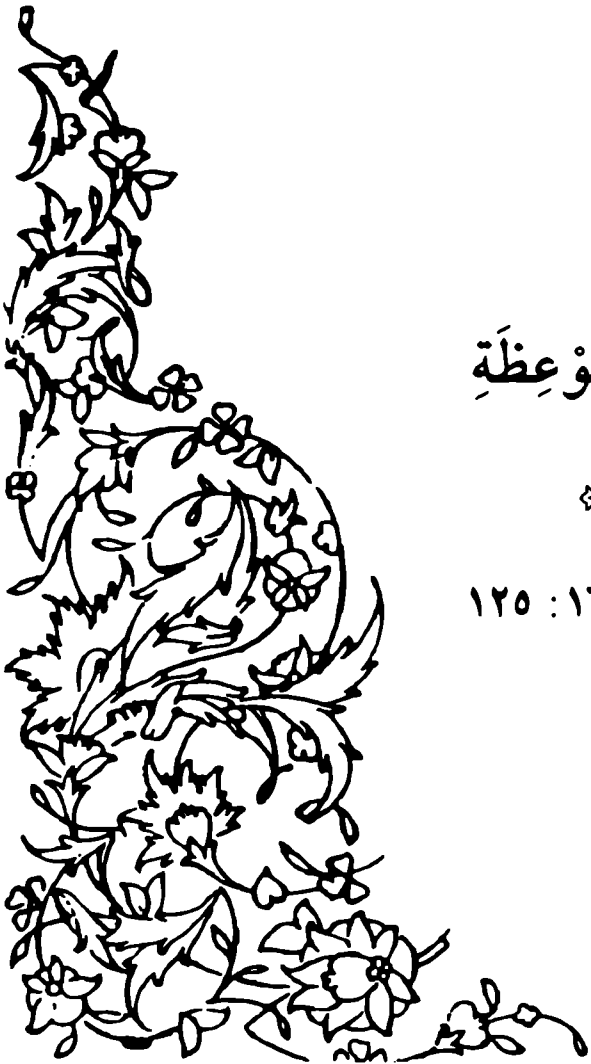 وْعِظَةِ
١٢٥ :